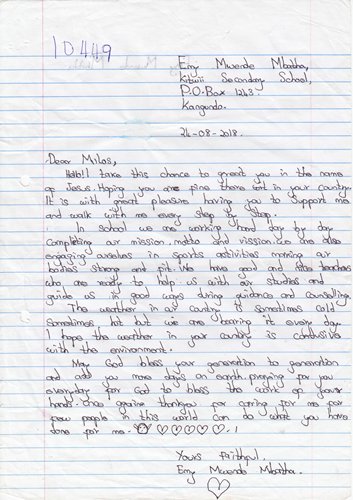 10449
Emy Mwende Mbatha,
Kitwii Secondary School,
P.O.Box 1243
Kangundo.
24-08-2018.
Dear Milos,
Hello! I take this chance to great you in the name
of Jesus. Hoping you are fine there out in your country.
It is with great pleasure having you to support me
and walk with me every step by step.
In school we are working hand day by day
completing our mission, motto and vission. We are also
engaging ourselves in sports activities making our
bodies strong and fit. We have good and nice teachers
who are ready to help us with our studies and
guide us in good ways during guidance and counselling.
The weather in our country is sometimes cold
sometimes hot but we are bearing it every day.
I hope the weather in your country is conducive
with the environment.
May God bless your generation to generation
and add you more days on earth. praying for you
everyday for God to bless the work of your
hands. Once againe thankyou for caring for me for
few people in this world can do what you have
done for me. !
Yours Faithful.
Emy Mwende Mbatha.